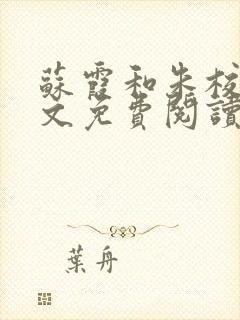 蘇霞和朱校
文免費閱讀
葉舟